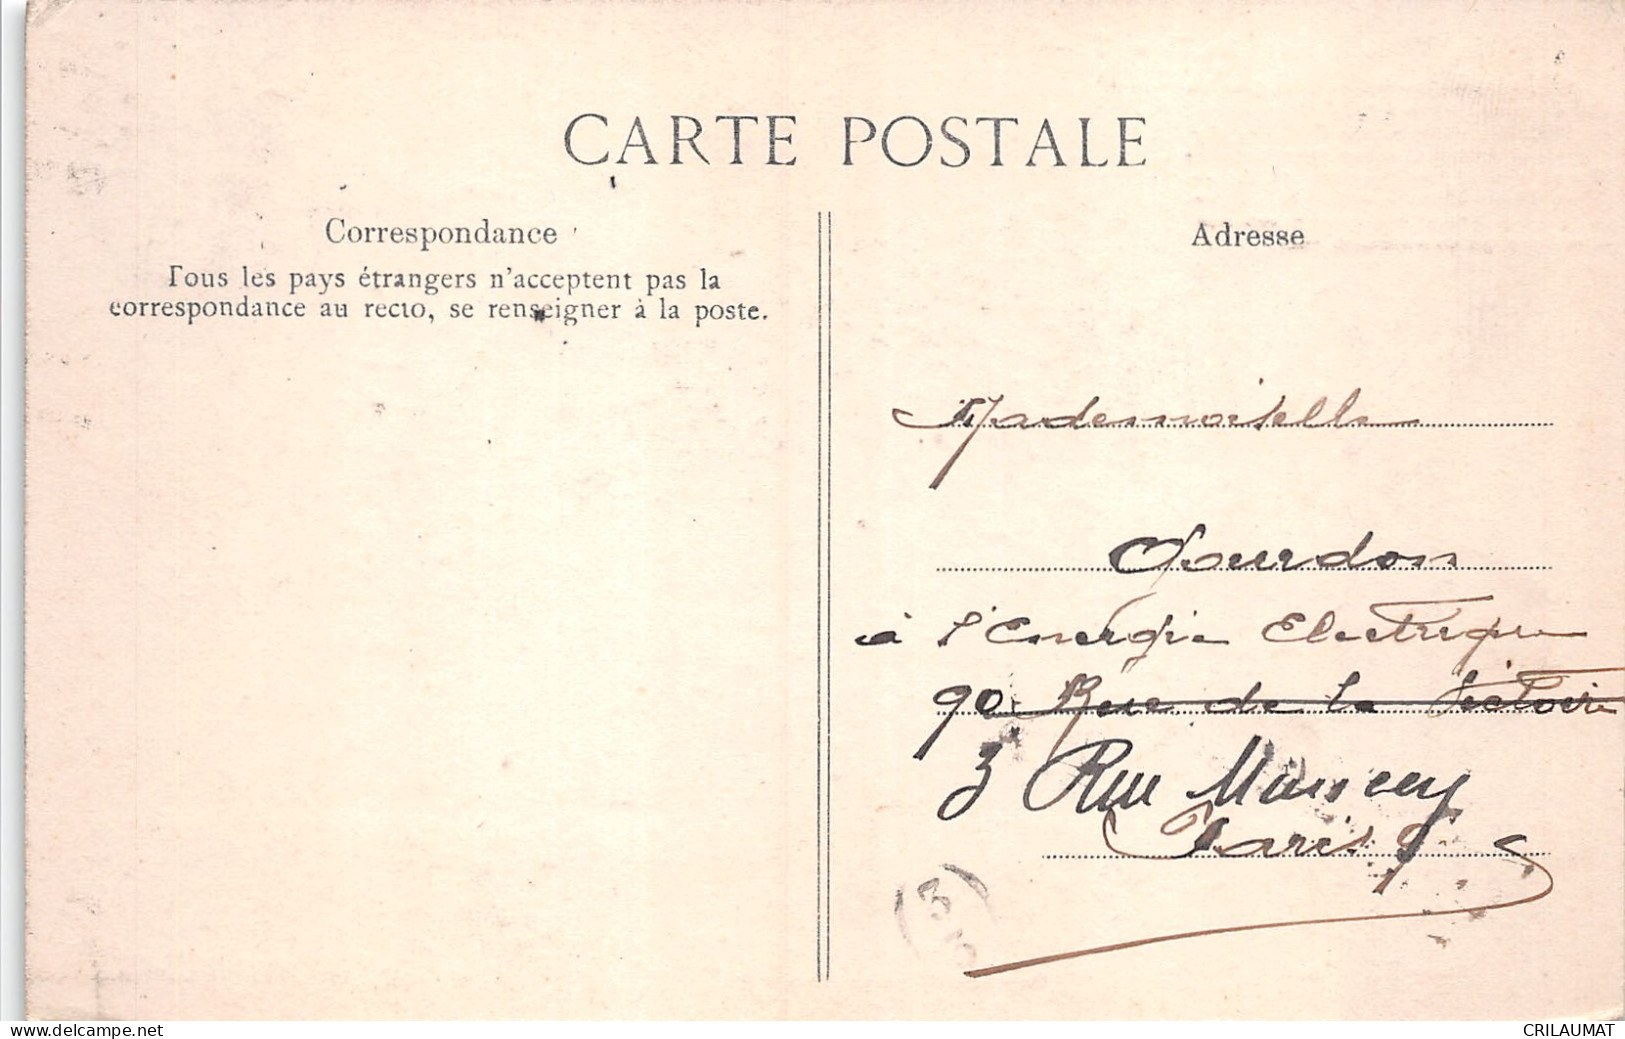 CARTE POSTALE
Correspondance
Tous les pays étrangers n'acceptent pas la
correspondance au recto, se renseigner à la poste.
Adresse
Mademoiselle
Gourdon
à l'Energie Electrique
90 Rue de la Victoire
3 Rue Moncey
Paris 9e
(3
www.delcampe.net
CRILAUMAT